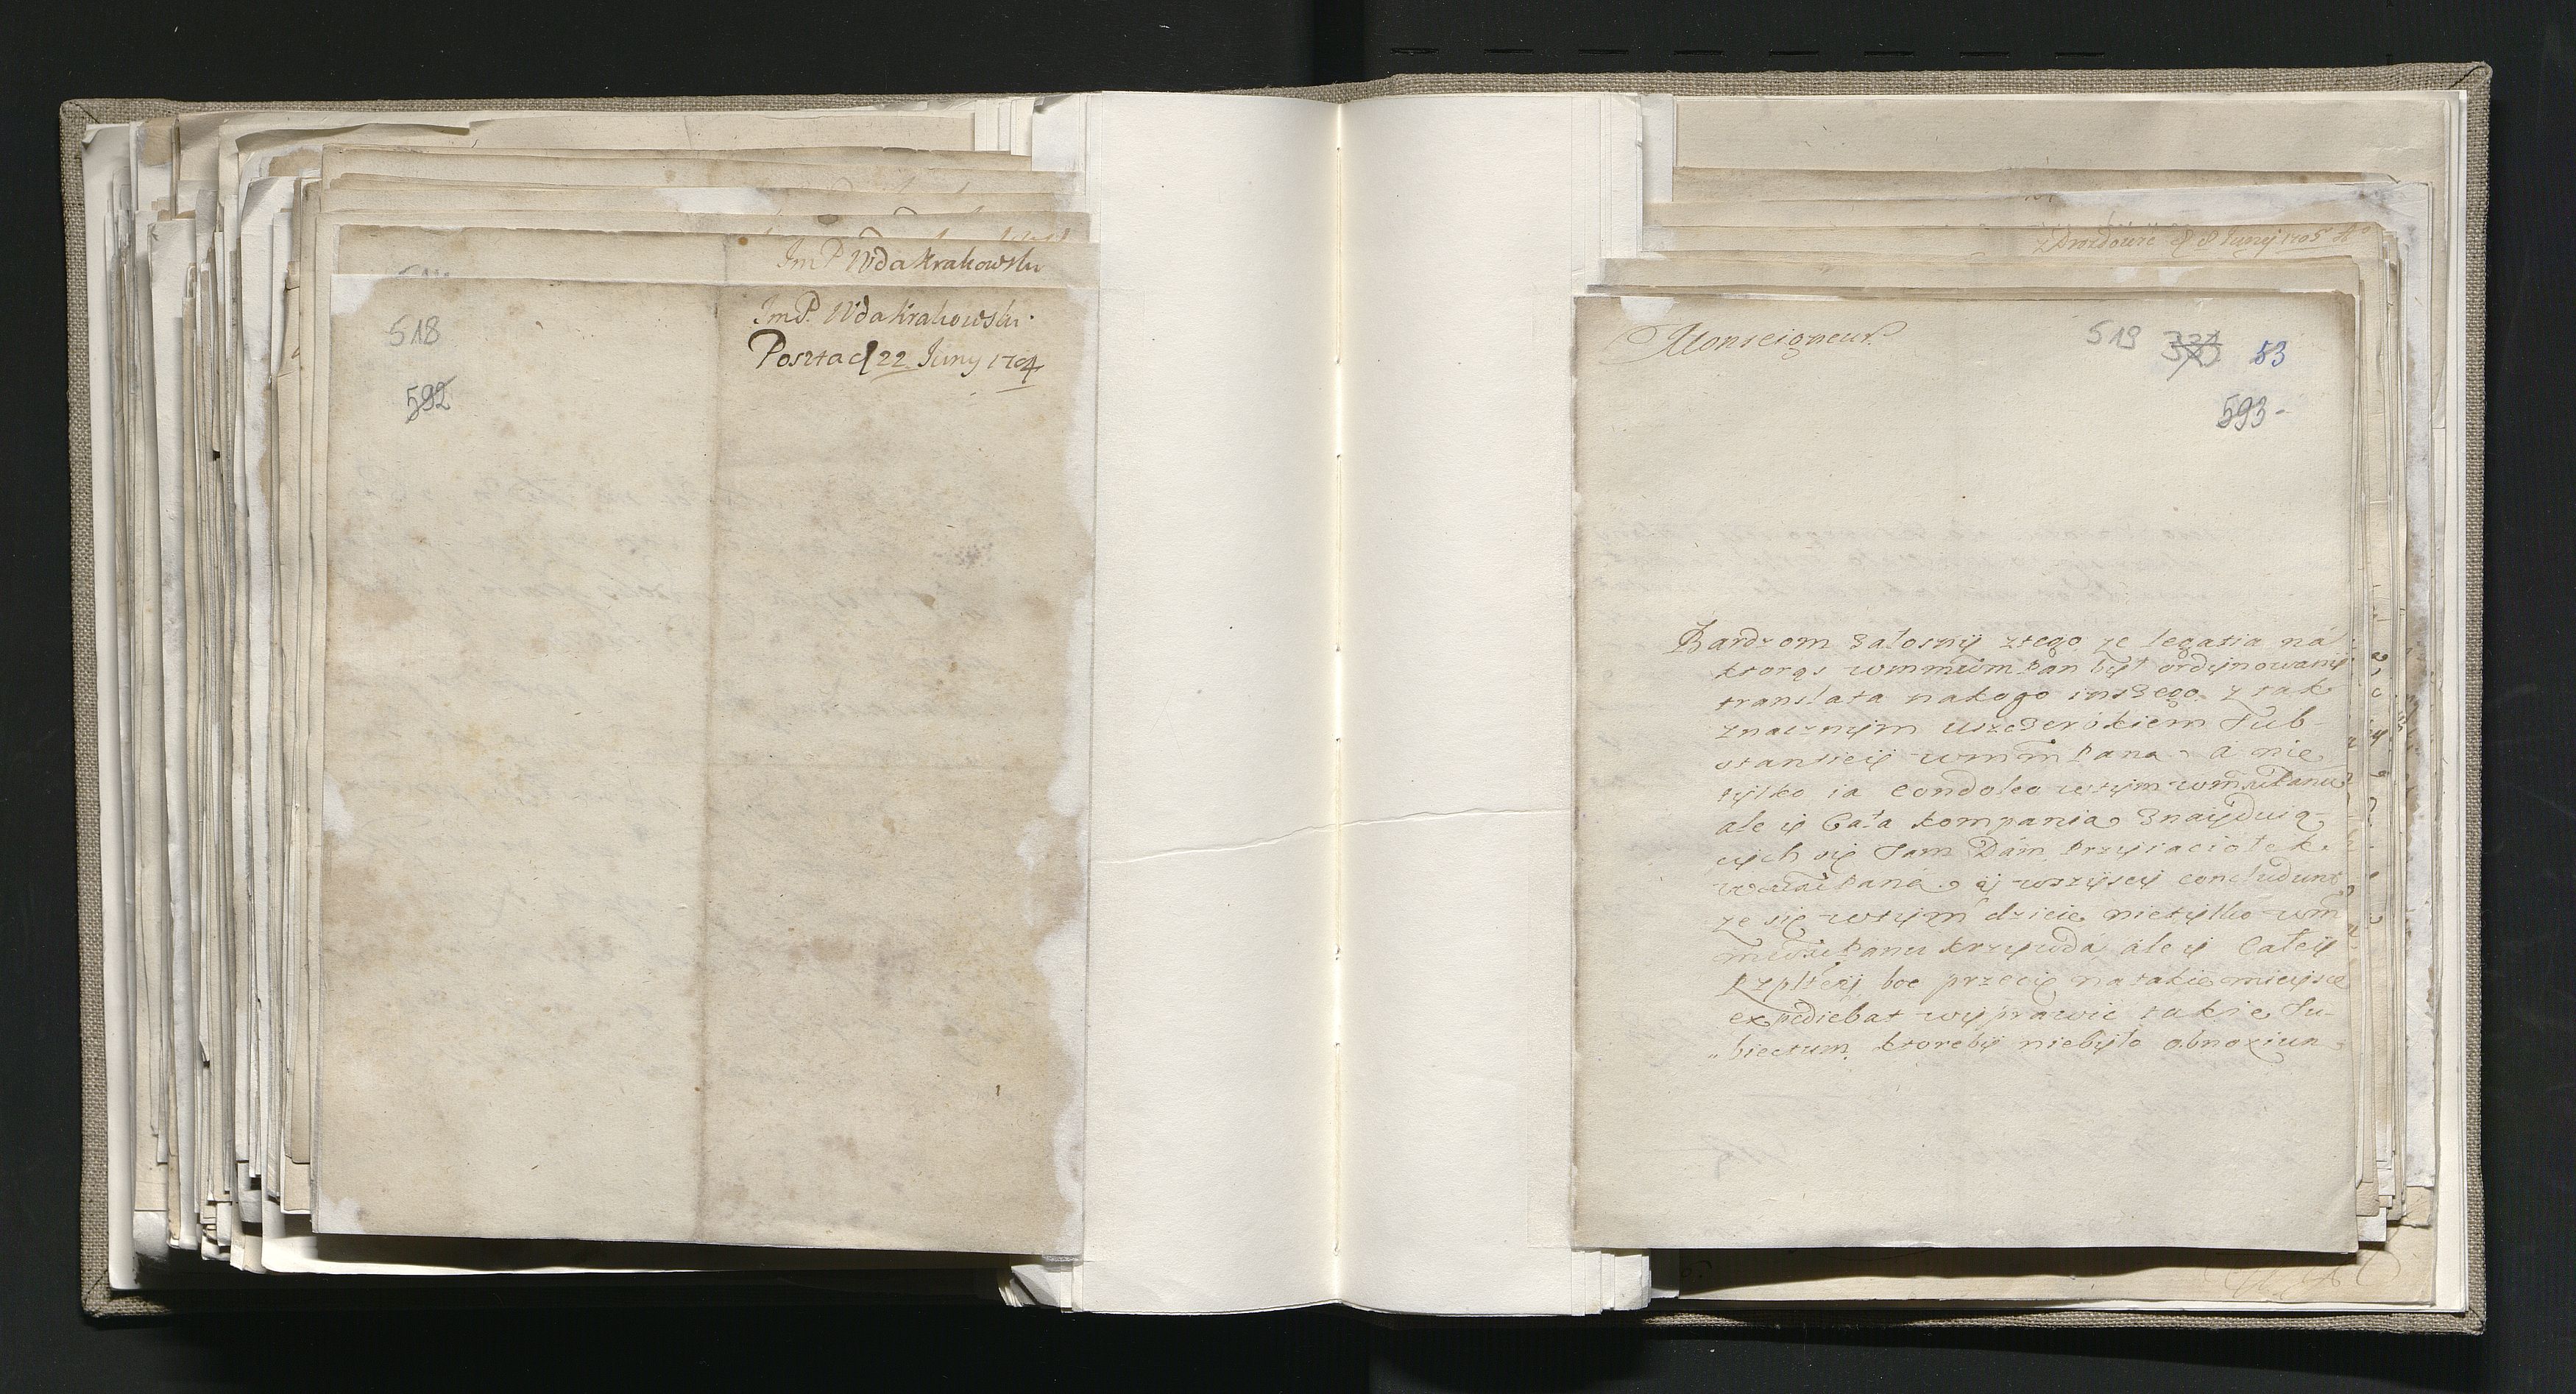 ImP Wda Krakowski
518
592
ImP. Wda Krakowski.
Posztą d 22. Juny 1704
z Drozdowic d 8 Juny 1705
Monseigneur.
519 53
593-
Bardzom załosny ztego ze legatia na
ktorąs wmmwm Pan był ordynowany
translata nakogo inszego z tak
znacznym uszczerbkiem Sub-
stantiey wmm Pana a nie
tylko ia condoleo wtym Panu
ale y Cała kompania znayduią-
cych się Tam Dam Przyiaciołek
Pana. y wszyscy concludunt
ze się wtym dzieie nietylko wm
Panu krzywda, ale y Całey
Rzpltey boc przecię natakie mieysce
expediebat wyprawic takie Su-
"biectum ktoreby niebyło obnoxium